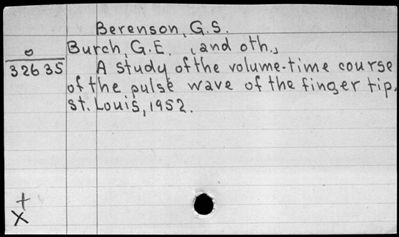 Berenson, G.S.
Burch, G.E. (and oth.)
o
32635
A study of the volume-time course
of the pulse wave of the finger tip.
St. Louis, 1952.
+
X